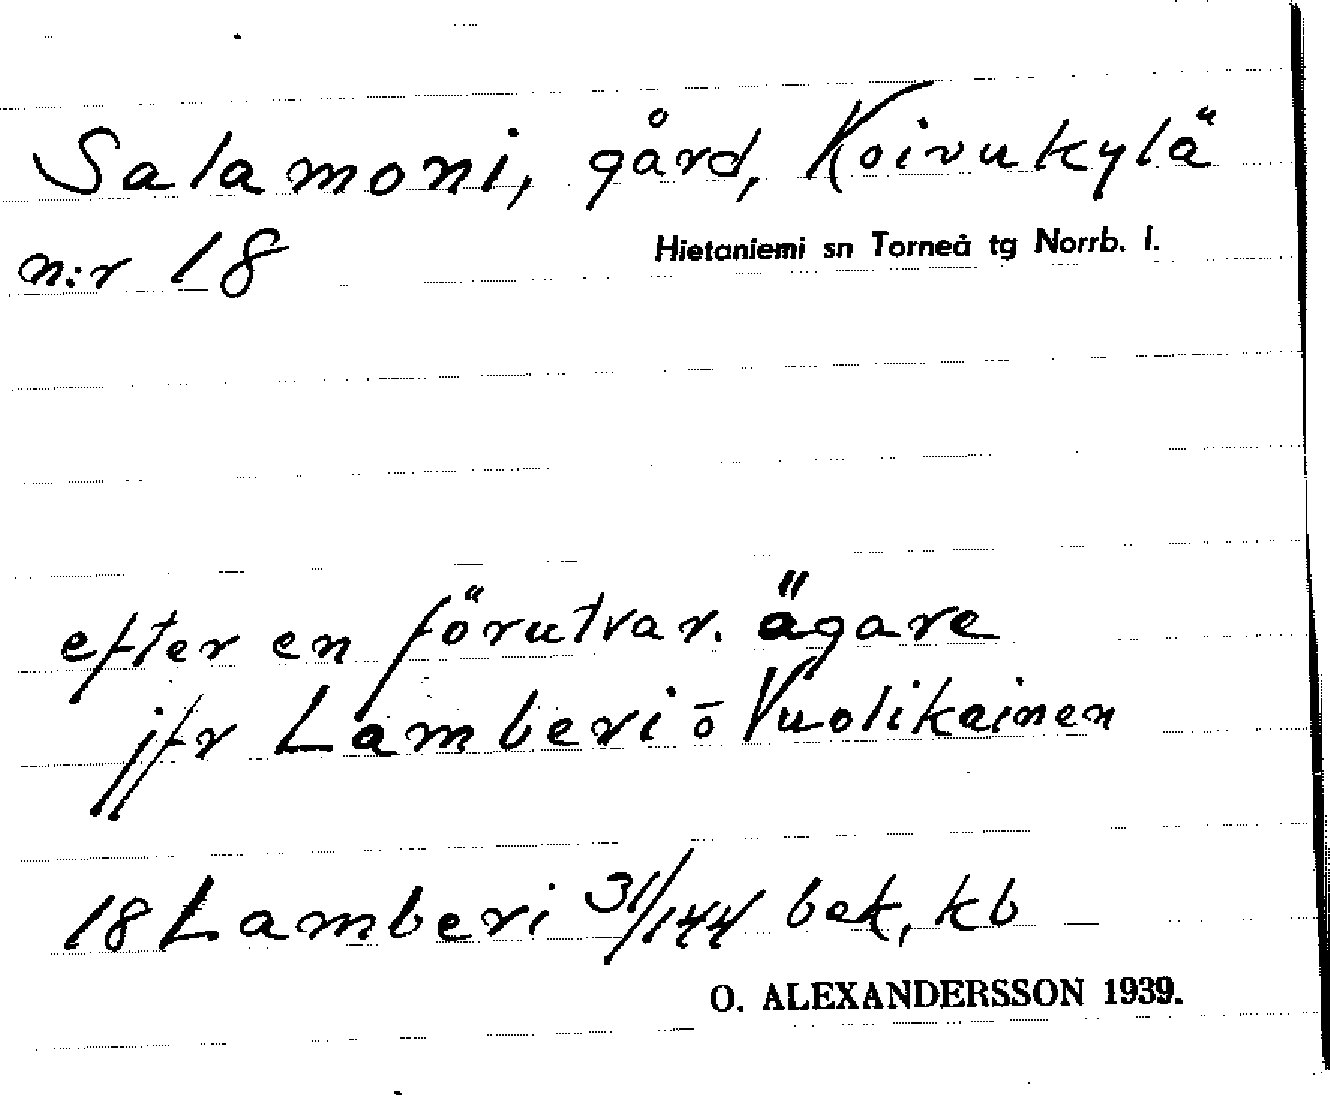 Salamoni, gård, Koivukylä
n:r 18
Hietaniemi sn Torneå tg Norrb. l.
efter en förutvar. ägare
jfr Lamberi o Vuolikainen
18 Lamberi 31/144 bek, kb
O. ALEXANDERSSON 1939.